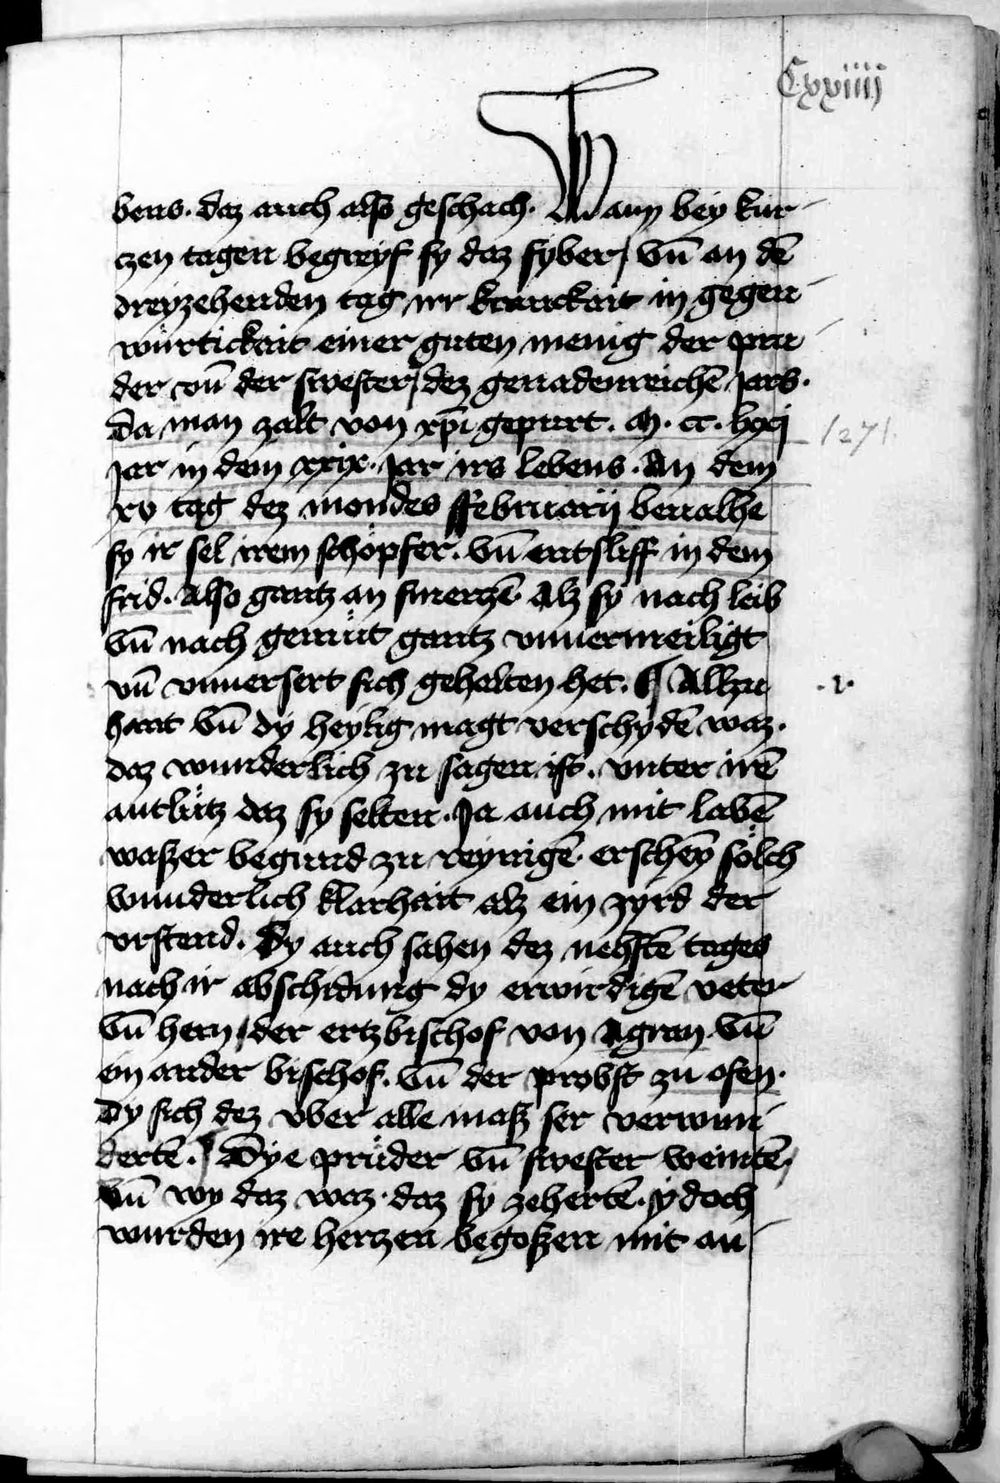 Cxxiiij
bens. daz auch also geschach. Wann bey kur-
czen tagen begreyf sy daz fyber / vn̄ an dē
dreyzehenden tag irr kranckait in gegen-
würtickait einer guten menig der prü-
der vn̄ der swester / dez genadenreichē jars.
Da man zalt von xp̄i gepurt. M. cc. lxxj
1271.
Jar in dem xxix. Jar irs lebens. An dem
xv tag dez mondes Februarij benalhe
sy ir sel irem schöpfer. vn̄ entsliff in dem
frid. Also gantz an smerczē Alz sy nach leib
vn̄ nach gemüt gantz vnuermeiligt
vn̄ vnuersert sich gehalten het. ¶ Allzu
.v.
hant vn̄ dy heylig magt verschydē waz.
daz wunderlich zu sagen ist. vnter irē
antlütz daz sy selten. Ja auch mit labē
waßer begund zu reynigē. erscheyn sölch
wunderlich klarhait alz ein zyrd der
vrstend. Dy auch sahen dez nehstē tages
nach ir abschidung dy erwirdigē veter
vn̄ hern / der ertzbischof von Agran. vn̄
ein ander bischof. vn̄ der probst zu ofen.
Dy sich dez vber alle maß ser verwun-
dertē. / Dye prüder vn̄ swester weintē /
vn̄ wy daz waz. daz sy zehertē. ydoch
wurden ire herczen begoßen mit an-